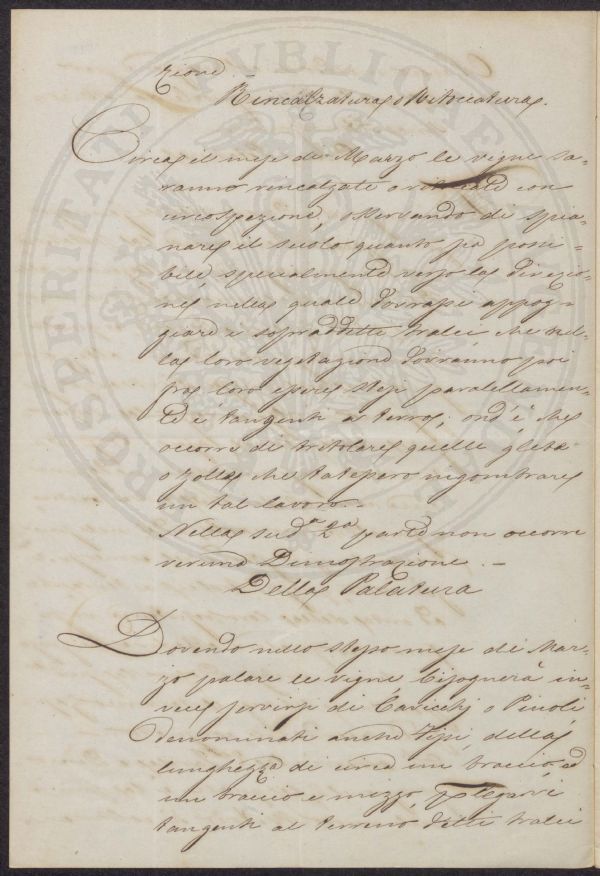 zione. –
Rincalzatura o Ritoccatura.
Circa il mese di Marzo le vigne sa=
ranno rincalzate o ritoccate con
circospezione, osservando di spia=
nare il suolo quanto più possi=
bile, specialmente verso la direzio=
ne nella quale dovrassi appog=
giare i sopraddetti tralci che nel=
la loro vegetazione dovranno poi
fra loro essere stesi paralellamen=
te e tangenti a terra; ond'è che
occorre di tritolare quelle glebe
o zolle che potessero ingombrare
un tal lavoro. –
Nella sud.a 2.a parte non occorre
veruna Dimostrazione. –
Della Palatura
Dovendo nello stesso mese di Mar=
zo palare le vigne bisognerà in=
vece servirsi di Cavicchj o Piuoli
denominati anche Tisi, della
lunghezza di circa un braccio, ed
un braccio e mezzo, legarvi
tangenti al terreno detti tralci
PROSPERITATI PUBLICAE AUGENDAE